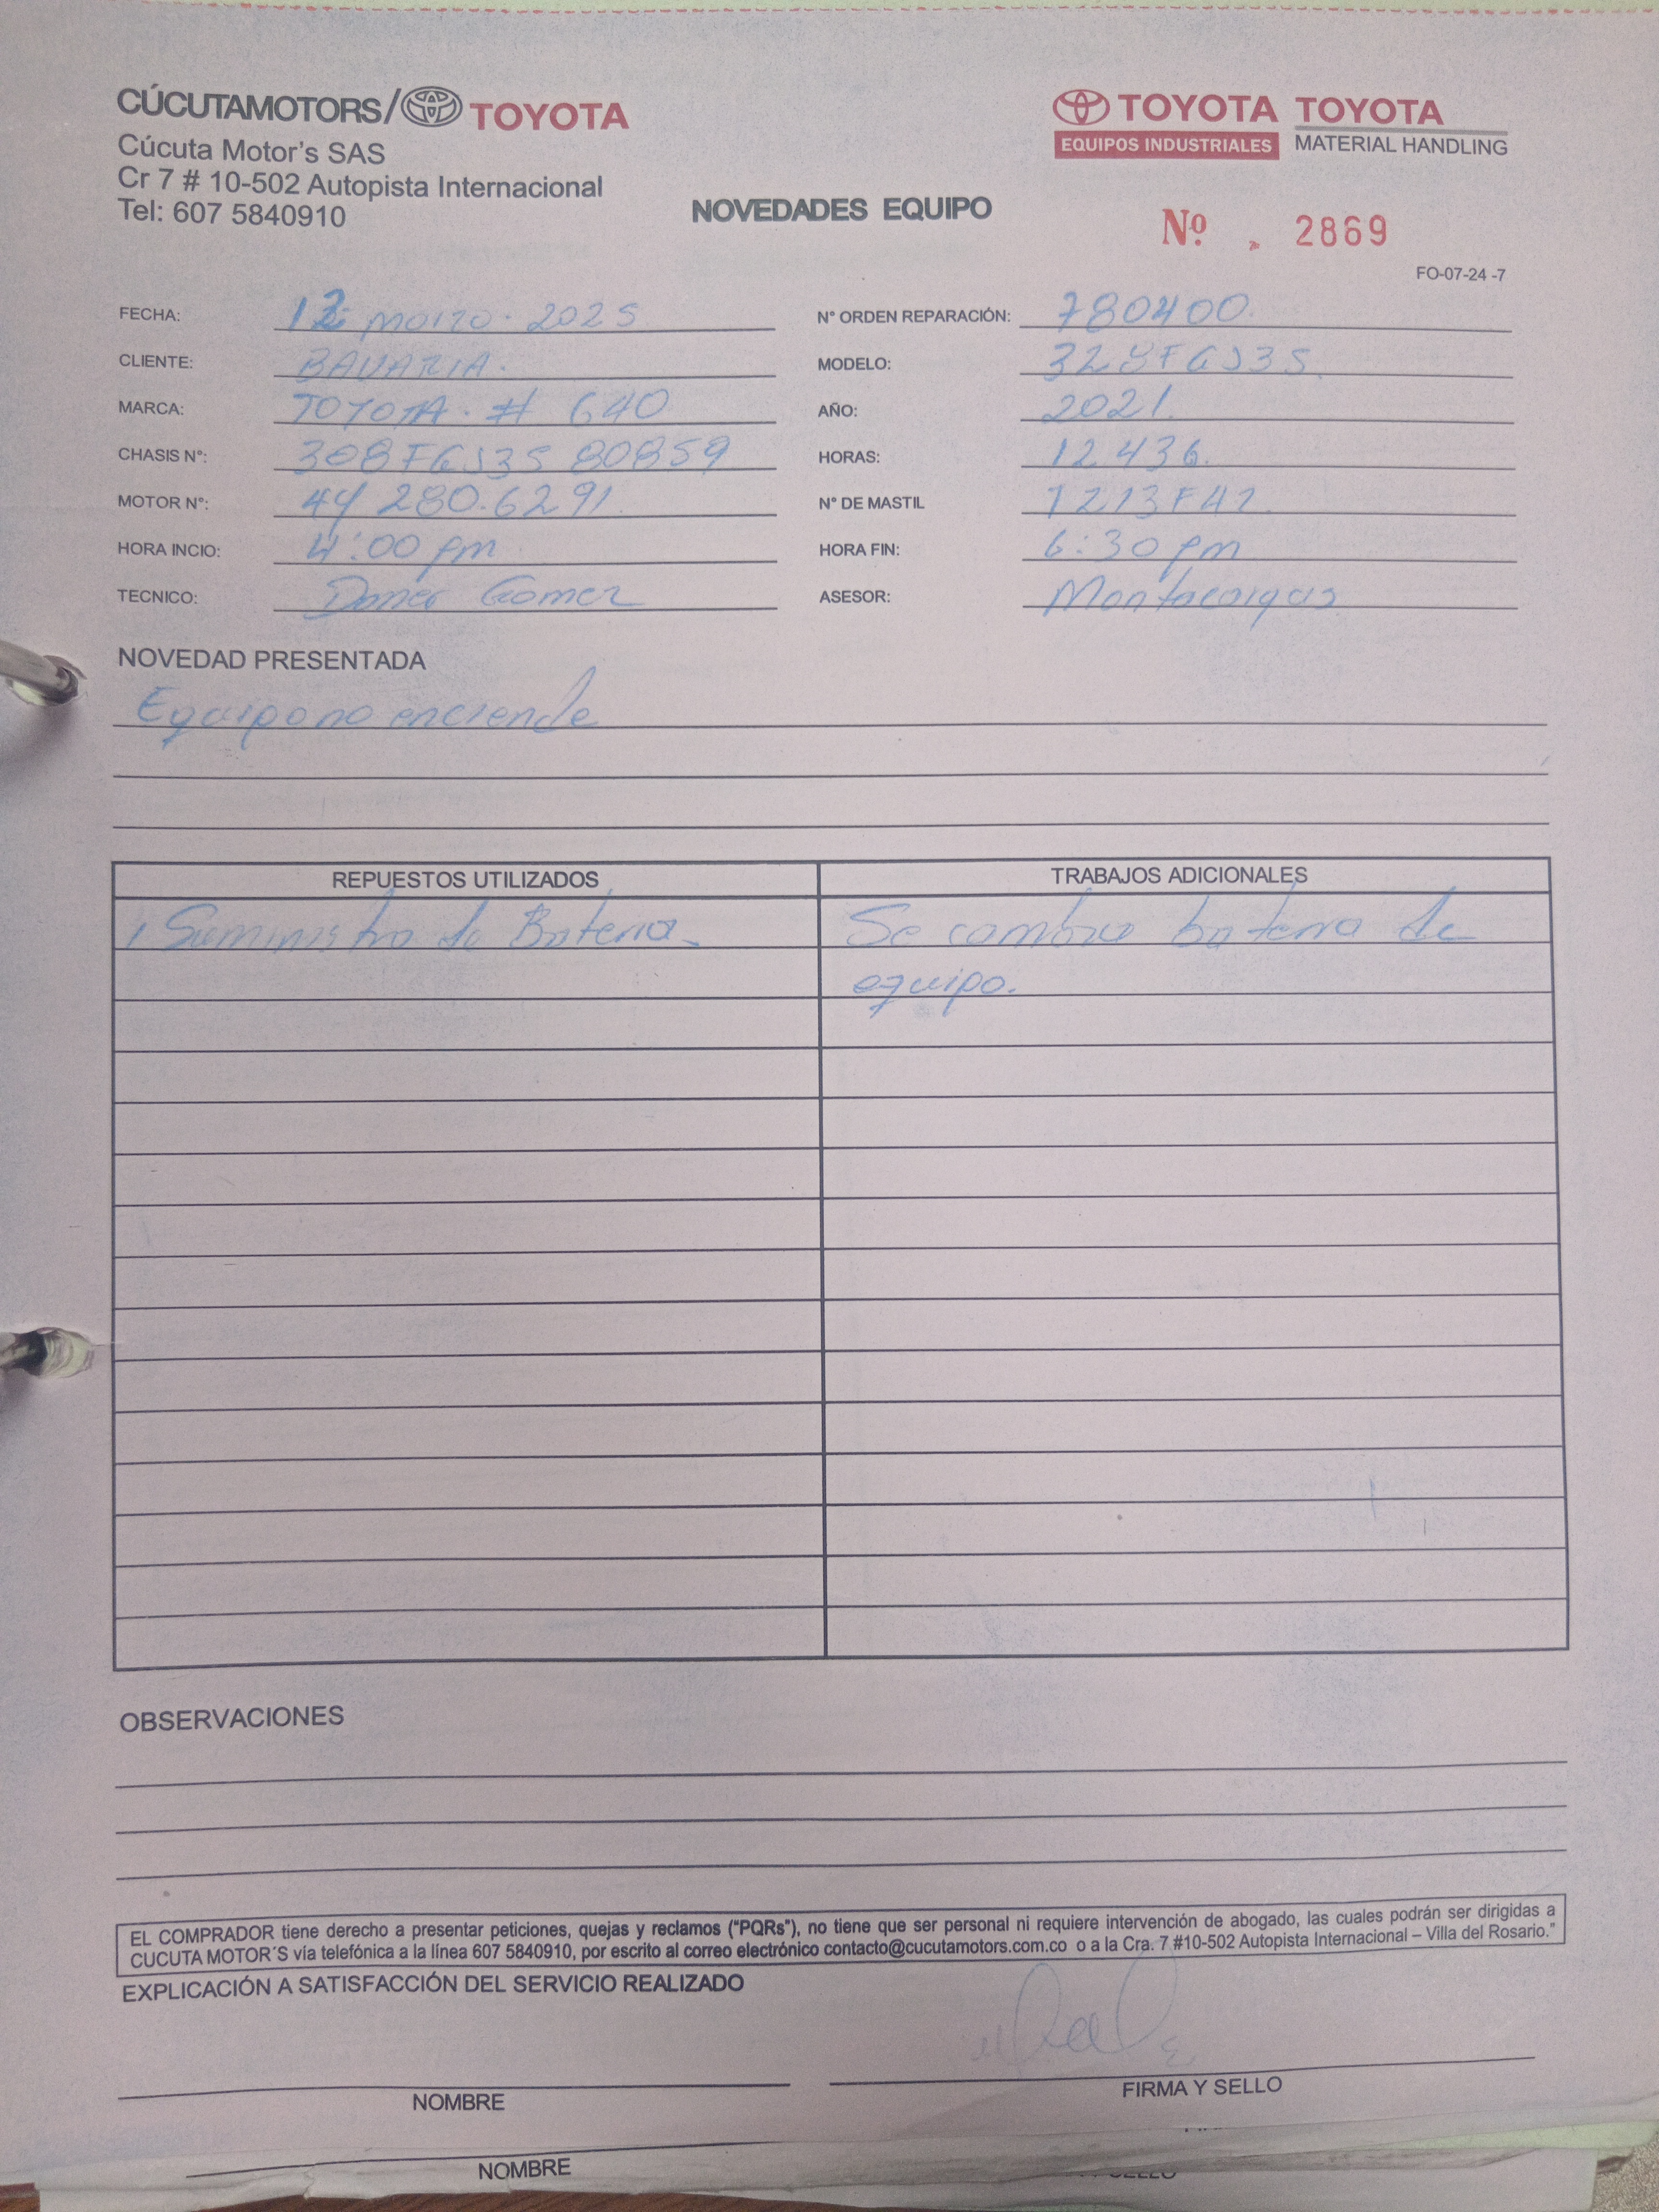 CÚCUTAMOTORS/ TOYOTA
Cúcuta Motor's SAS
Cr 7 # 10-502 Autopista Internacional
Tel: 607 5840910
TOYOTA EQUIPOS INDUSTRIALES
TOYOTA MATERIAL HANDLING
NOVEDADES EQUIPO
Nº. 2869
FO-07-24 -7
FECHA: marzo. 2025
N° ORDEN REPARACIÓN: 780400.
CLIENTE: BAVARIA.
MODELO: 328FGJ35.
MARCA: TOYOTA. # 640
AÑO: 2021.
CHASIS N°: 308FGJ35 80859
HORAS: 12.436.
MOTOR N°: 4Y 280.6291.
N° DE MASTIL
HORA INCIO: 4:00 pm
HORA FIN: 6:30 pm
TECNICO: Gomez
ASESOR: Montacargas
NOVEDAD PRESENTADA
Equipo no enciende
REPUESTOS UTILIZADOS
TRABAJOS ADICIONALES
1 Suministro de Bateria.
Se cambia bateria de
equipo.
OBSERVACIONES
EL COMPRADOR tiene derecho a presentar peticiones, quejas y reclamos ("PQRs"), no tiene que ser personal ni requiere intervención de abogado, las cuales podrán ser dirigidas a
CUCUTA MOTOR´S vía telefónica a la línea 607 5840910, por escrito al correo electrónico contacto@cucutamotors.com.co o a la Cra. 7 #10-502 Autopista Internacional – Villa del Rosario."
EXPLICACIÓN A SATISFACCIÓN DEL SERVICIO REALIZADO
NOMBRE
FIRMA Y SELLO
NOMBRE